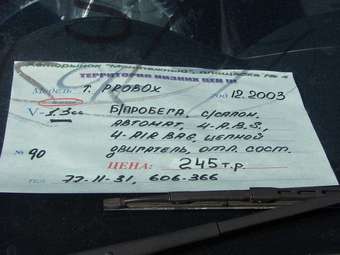 ТЕРРИТОРИЯ НИЗКИХ ЦЕН !!!
Модель T. PROBOX год 12.2003
V- 1.3 Б/ПРОБЕГА, С/САЛОН,
АВТОМАТ. 4-A.B.S.,
4-AIR BAG, ЦЕПНОЙ
№ 90 ДВИГАТЕЛЬ, ОТЛ. СОСТ.
ЦЕНА: 245 т.р.
тел. 77-11-31, 606-366